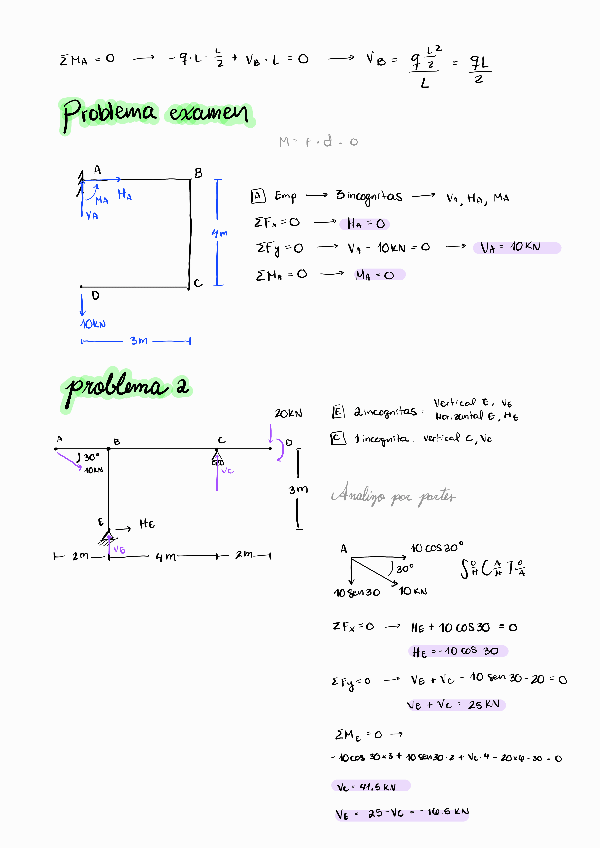 ΣMA = 0 → - q·L · L/2 + VB · L = 0 → VB = q L²/2 / L = qL/2
Problema examen
M = F · d = 0
A B
HA
MA
VA
4m
D C
10KN
3m
A Emp → 3 incognitas → VA, HA, MA
ΣFx = 0 → HA = 0
ΣFy = 0 → VA - 10KN = 0 → VA = 10KN
ΣMA = 0 → MA = 0
problema 2
20KN
A B C D
30°
10KN
VC
3m
E HE
VE
2m 4m 2m
E 2 incognitas. Vertical E, VE
Horizontal E, HE
C 1 incognita. vertical C, VC
Analizo por partes
A 10 cos 30°
30°
10 sen 30 10 KN
ΣFx = 0 → HE + 10 cos 30 = 0
HE = -10 cos 30
ΣFy = 0 → VE + VC - 10 sen 30 - 20 = 0
VE + VC = 25 KN
ΣME = 0 →
- 10 cos 30 × 3 + 10 sen 30 · 2 + VC · 4 - 20 × 6 - 30 = 0
VC = 41.5 KN
VE = 25 - VC = - 16.5 KN